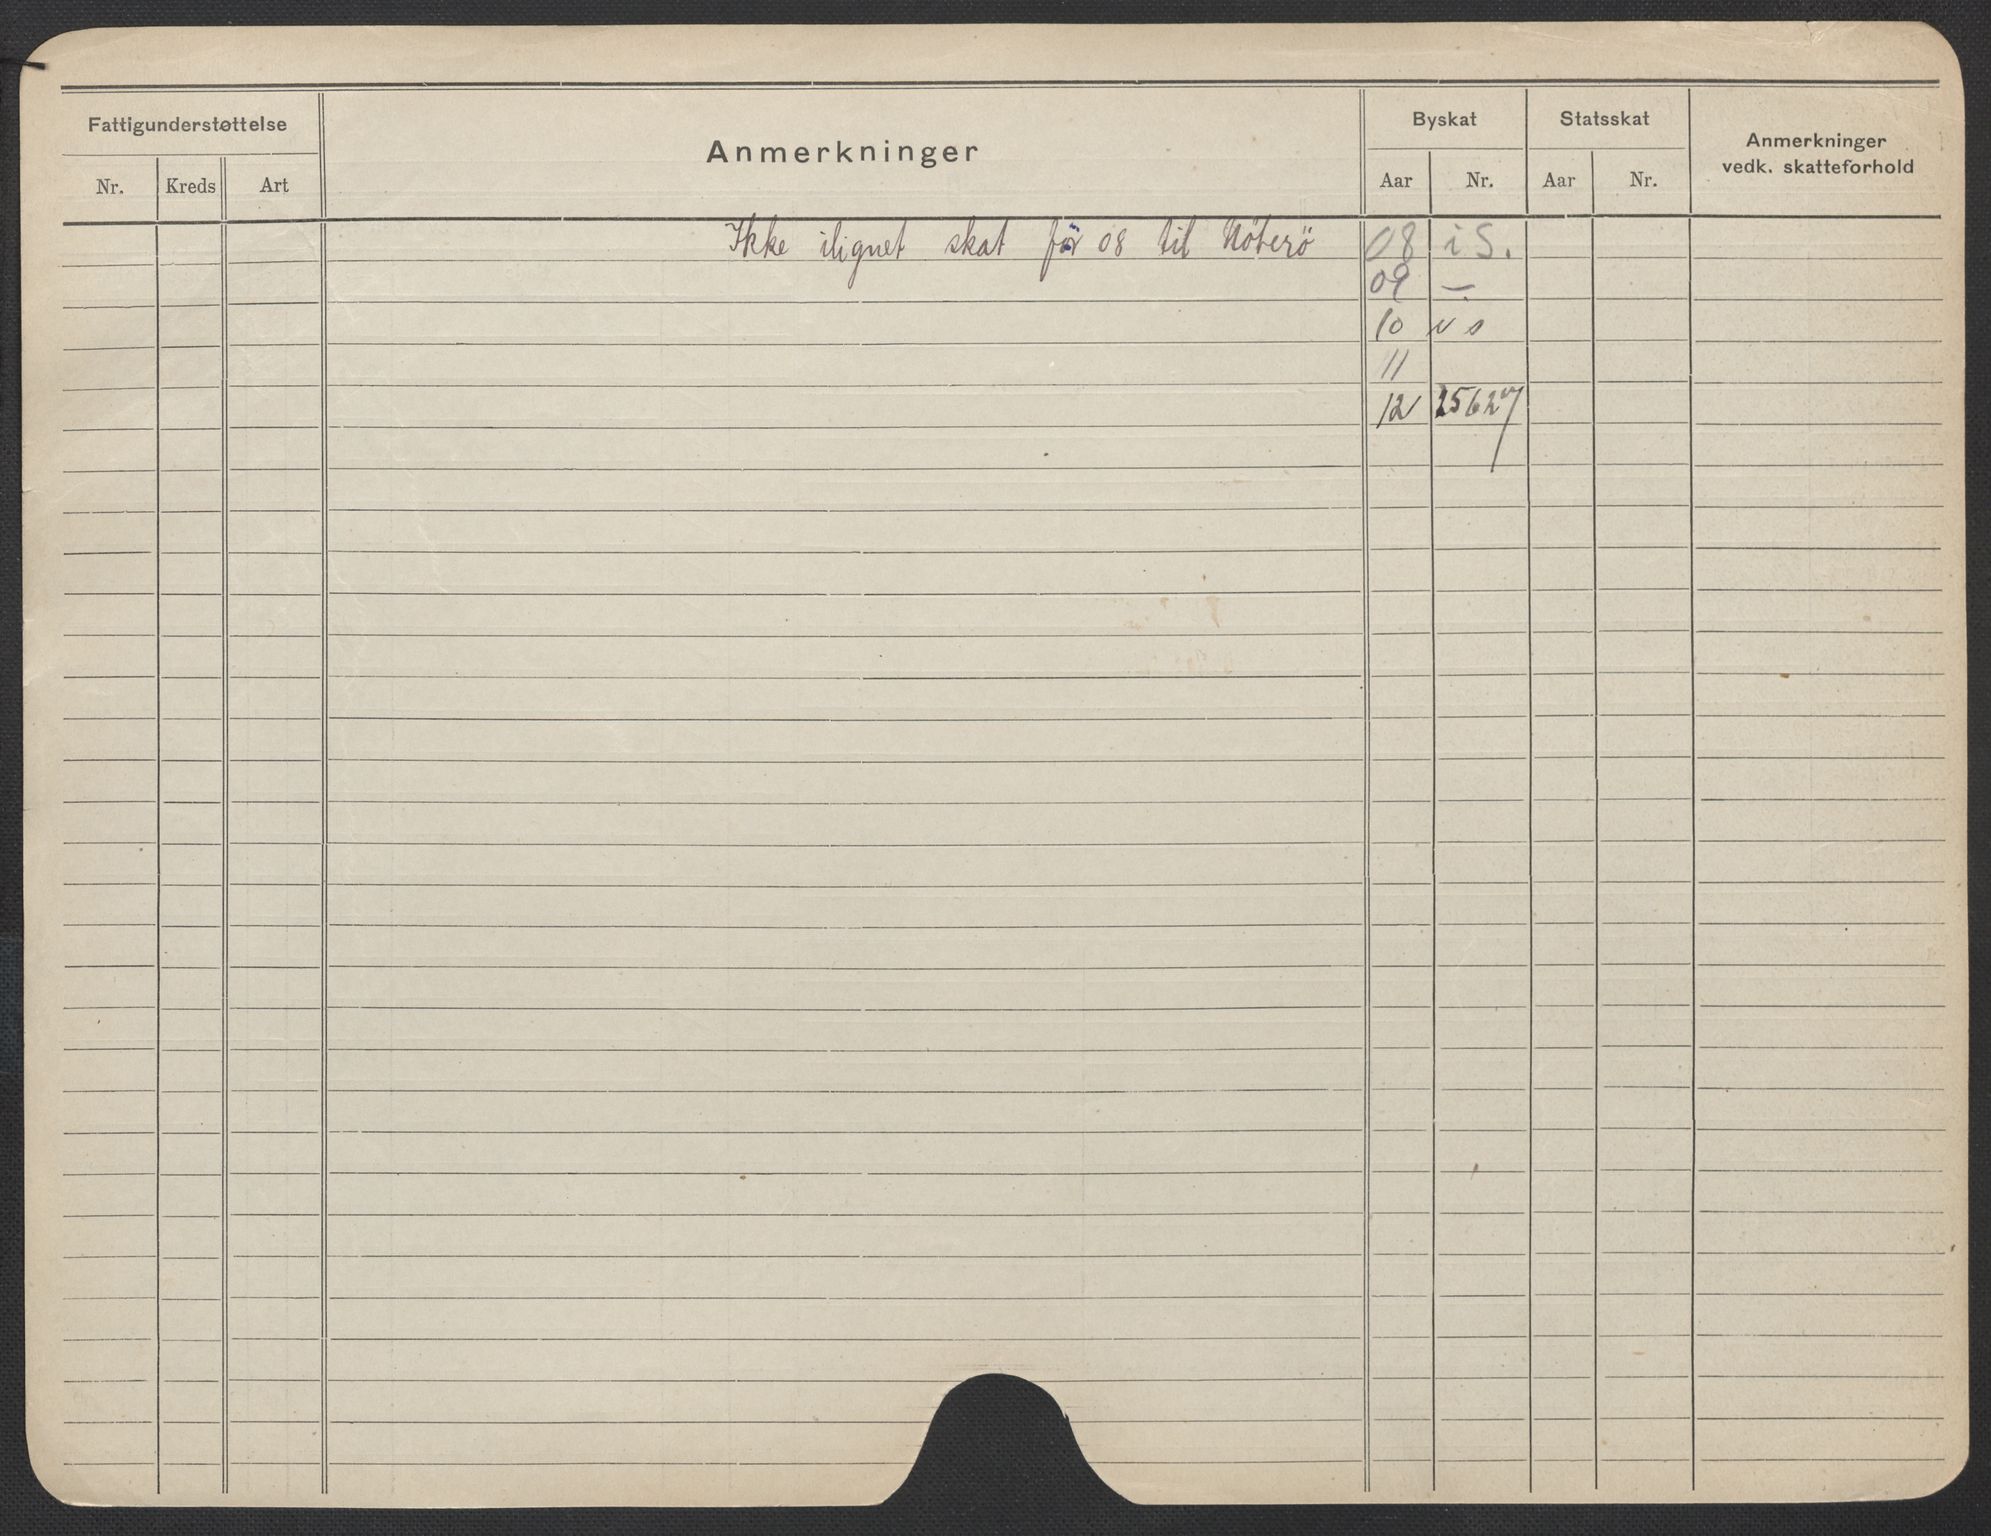 Fattigunderstøttelse
Nr. Kreds Art
Anmerkninger
Byskat
Aar Nr.
Statsskat
Aar Nr.
Anmerkninger
vedk. skatteforhold
Ikke ilignet skat för 08 til Nöterö 08 i S.
09 —
10
11
12